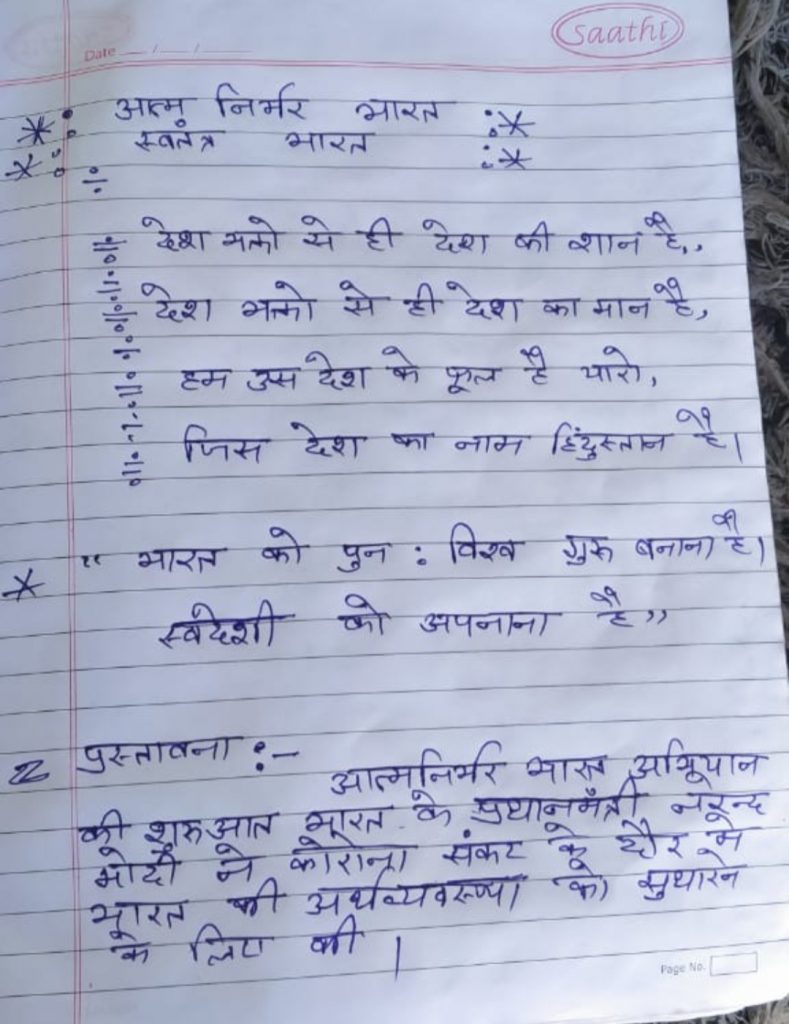 Saathi
Date
आत्म निर्भर भारत
स्वतंत्र भारत
देश भक्तो से ही देश की शान है,,
देश भक्तो से ही देश का मान है,
हम उस देश के फूल है यारो,
जिस देश का नाम हिंदुस्तान है।
" भारत को पुन : विश्व गुरू बनाना है।
स्वदेशी को अपनाना है"
प्रस्तावना :-
आत्मनिर्भर भारत अभियान
की शुरुआत भारत के प्रधानमंत्री नरेन्द
मोदी ने कोरोना संकट के दौर मे
भारत की अर्थव्यवस्था को सुधारने
के लिए की |
Page No.